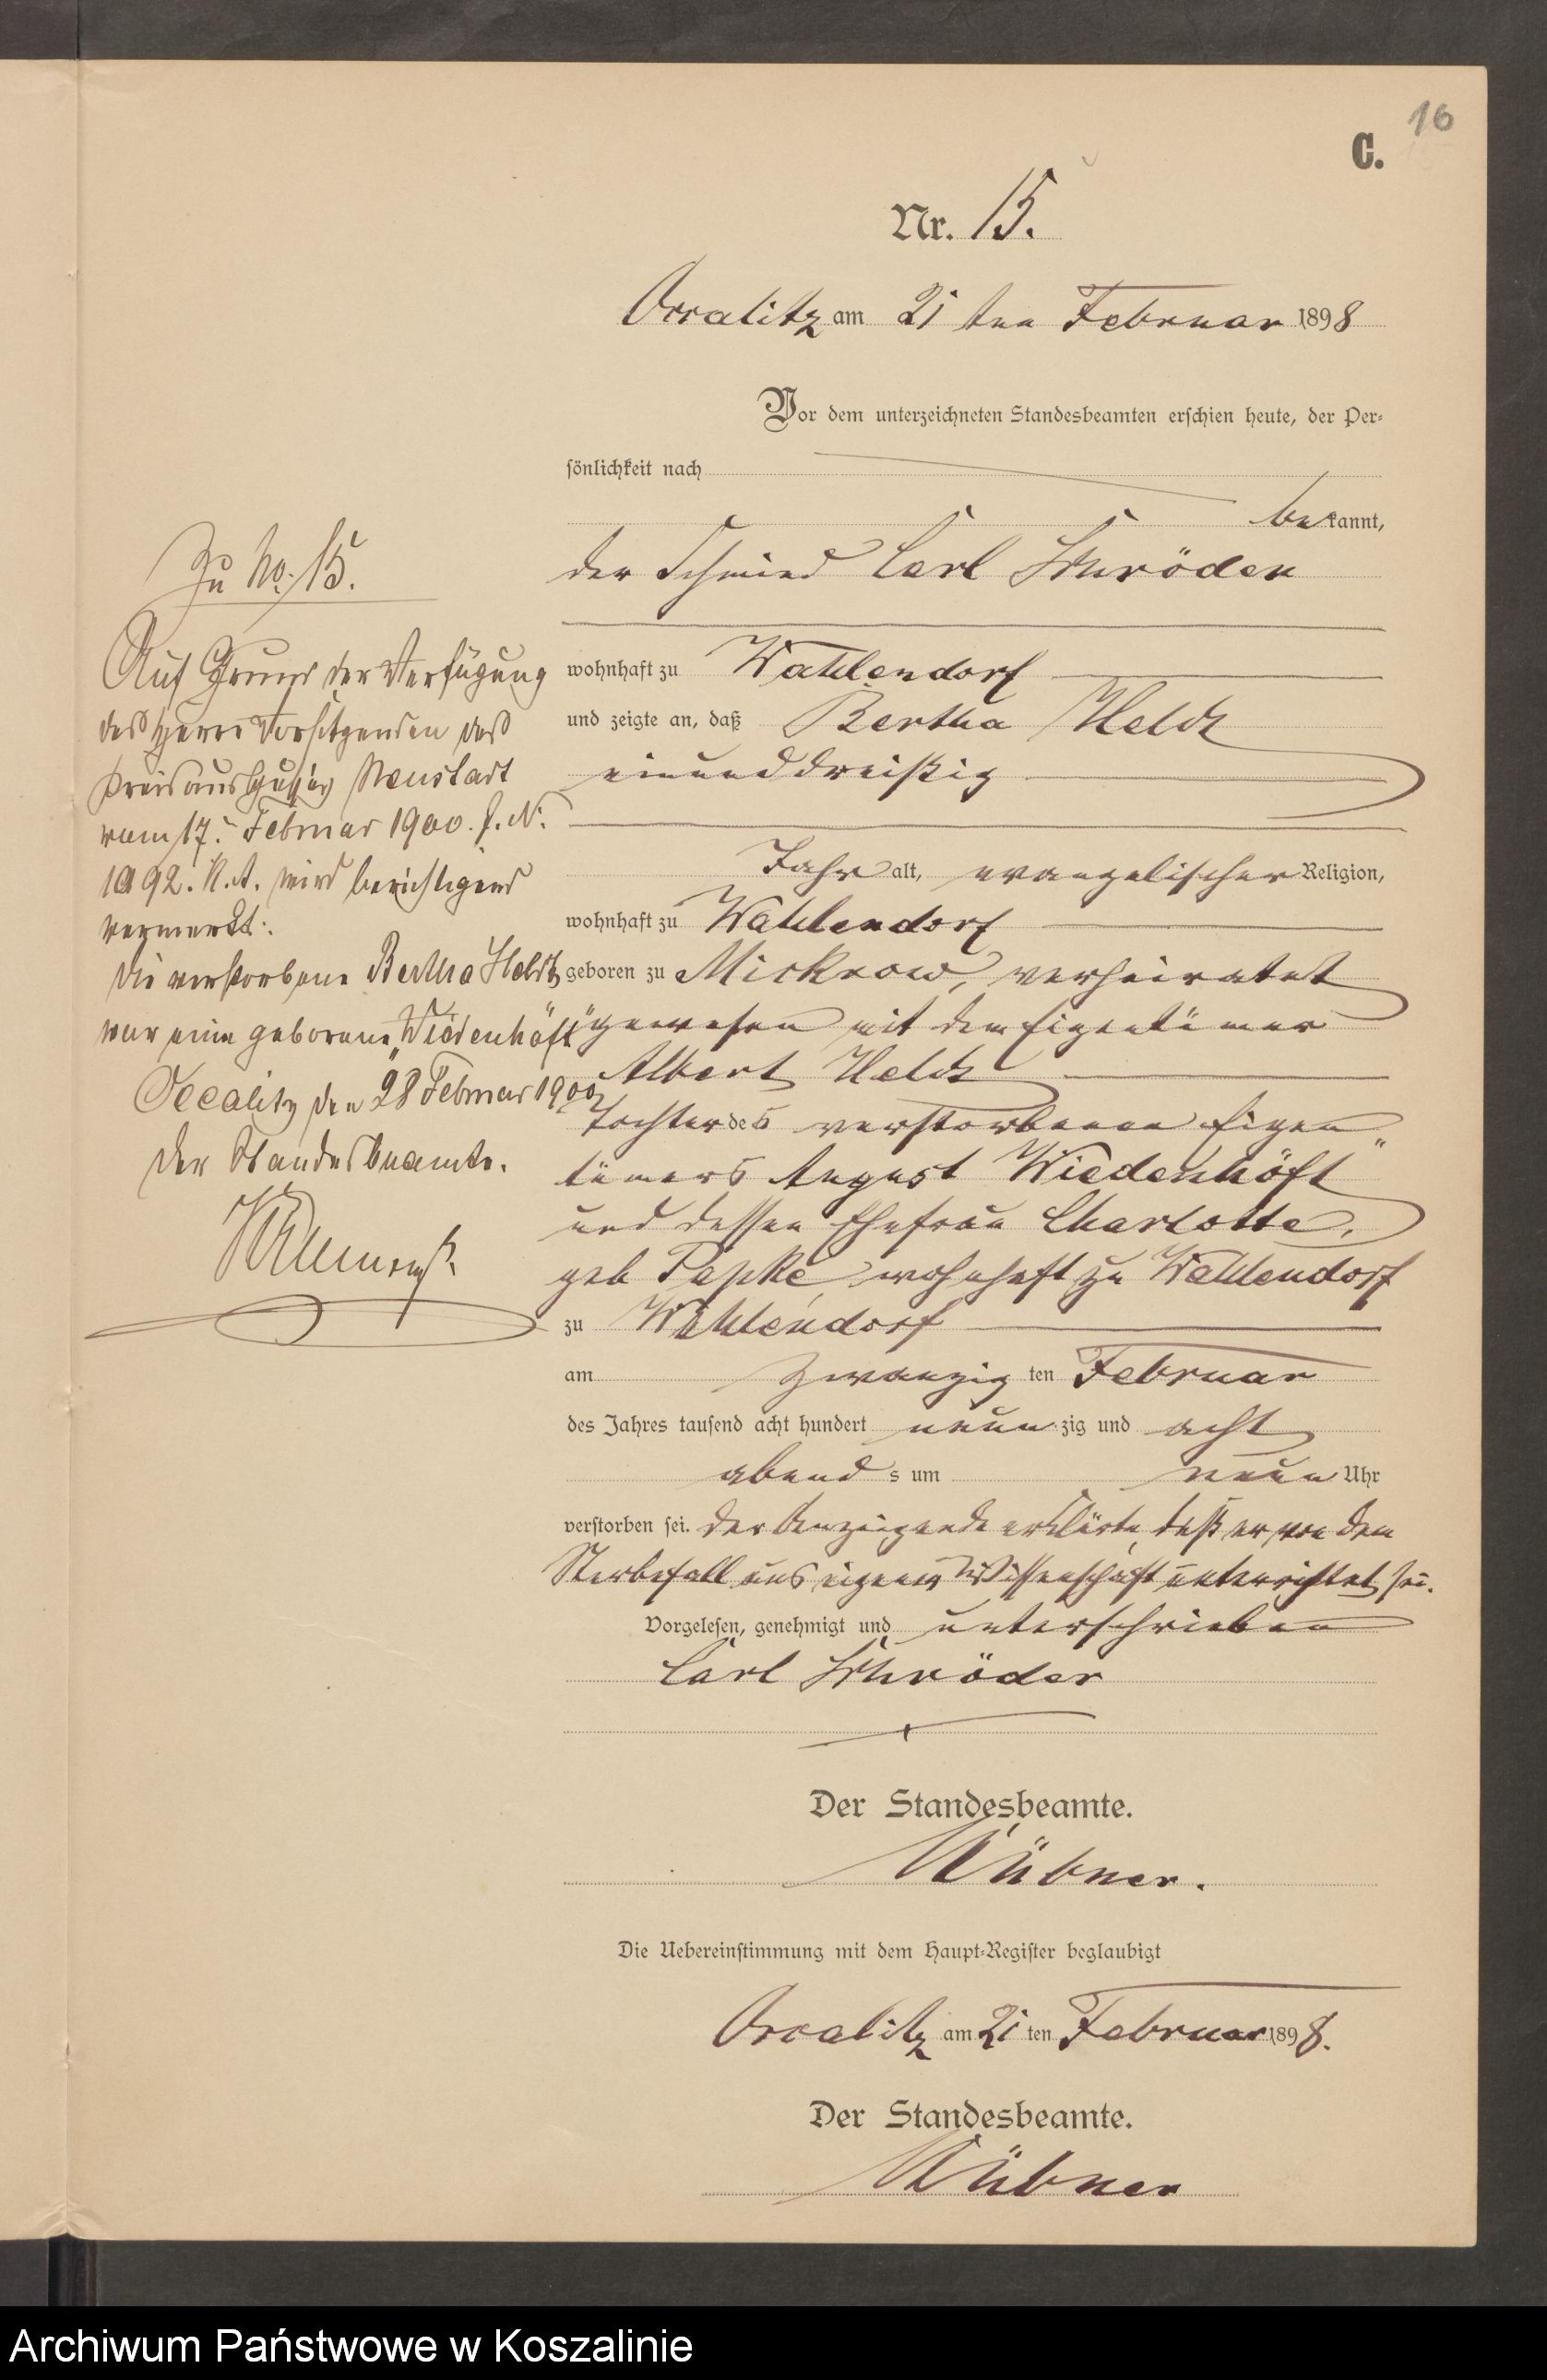 16
C.
Nr. 15.
Occalitz am 21 ten Februar 1898
Vor dem unterzeichneten Standesbeamten erschien heute, der Per-
sönlichkeit nach
bekannt,
der Schmied Carl Schröder
wohnhaft zu Wahlendorf
und zeigte an, daß Bertha Heldt
einunddreißig
Jahr alt, evangelischer Religion,
wohnhaft zu Wahlendorf
geboren zu Mickrow, verheiratet
gewesen mit dem Eigentümer
Albert Heldt
Tochter des verstorbenen Eigen
tümers August Wiedenhöft
und dessen Ehefrau Charlotte,
geb Papke, wohnhaft zu Wahlendorf
zu Wahlendorf
am zwanzig ten Februar
des Jahres tausend acht hundert neunzig und acht
abends um neun Uhr
verstorben sei. Der Anzeigende erklärte, daß er von dem
Sterbefall aus eigener Wissenschaft unterrichtet sei.
Vorgelesen, genehmigt und unterschrieben
Carl Schröder
Der Standesbeamte.
Hübner.
Die Uebereinstimmung mit dem Haupt-Register beglaubigt
Occalitz am 21 ten Februar 1898.
Der Standesbeamte.
Hübner
Zu No. 15.
Auf Grund der Verfügung
des Herrn Vorsitzenden des
Kreisausschusses Neustadt
vom 17. Februar 1900. J. N.
1092. K. A. wird berichtigend
vermerkt:
Die verstorbene Bertha Heldt
war eine geborene „Wiedenhöft"
Occalitz den 28 Februar 1900
Der Standesbeamte.
Archiwum Państwowe w Koszalinie